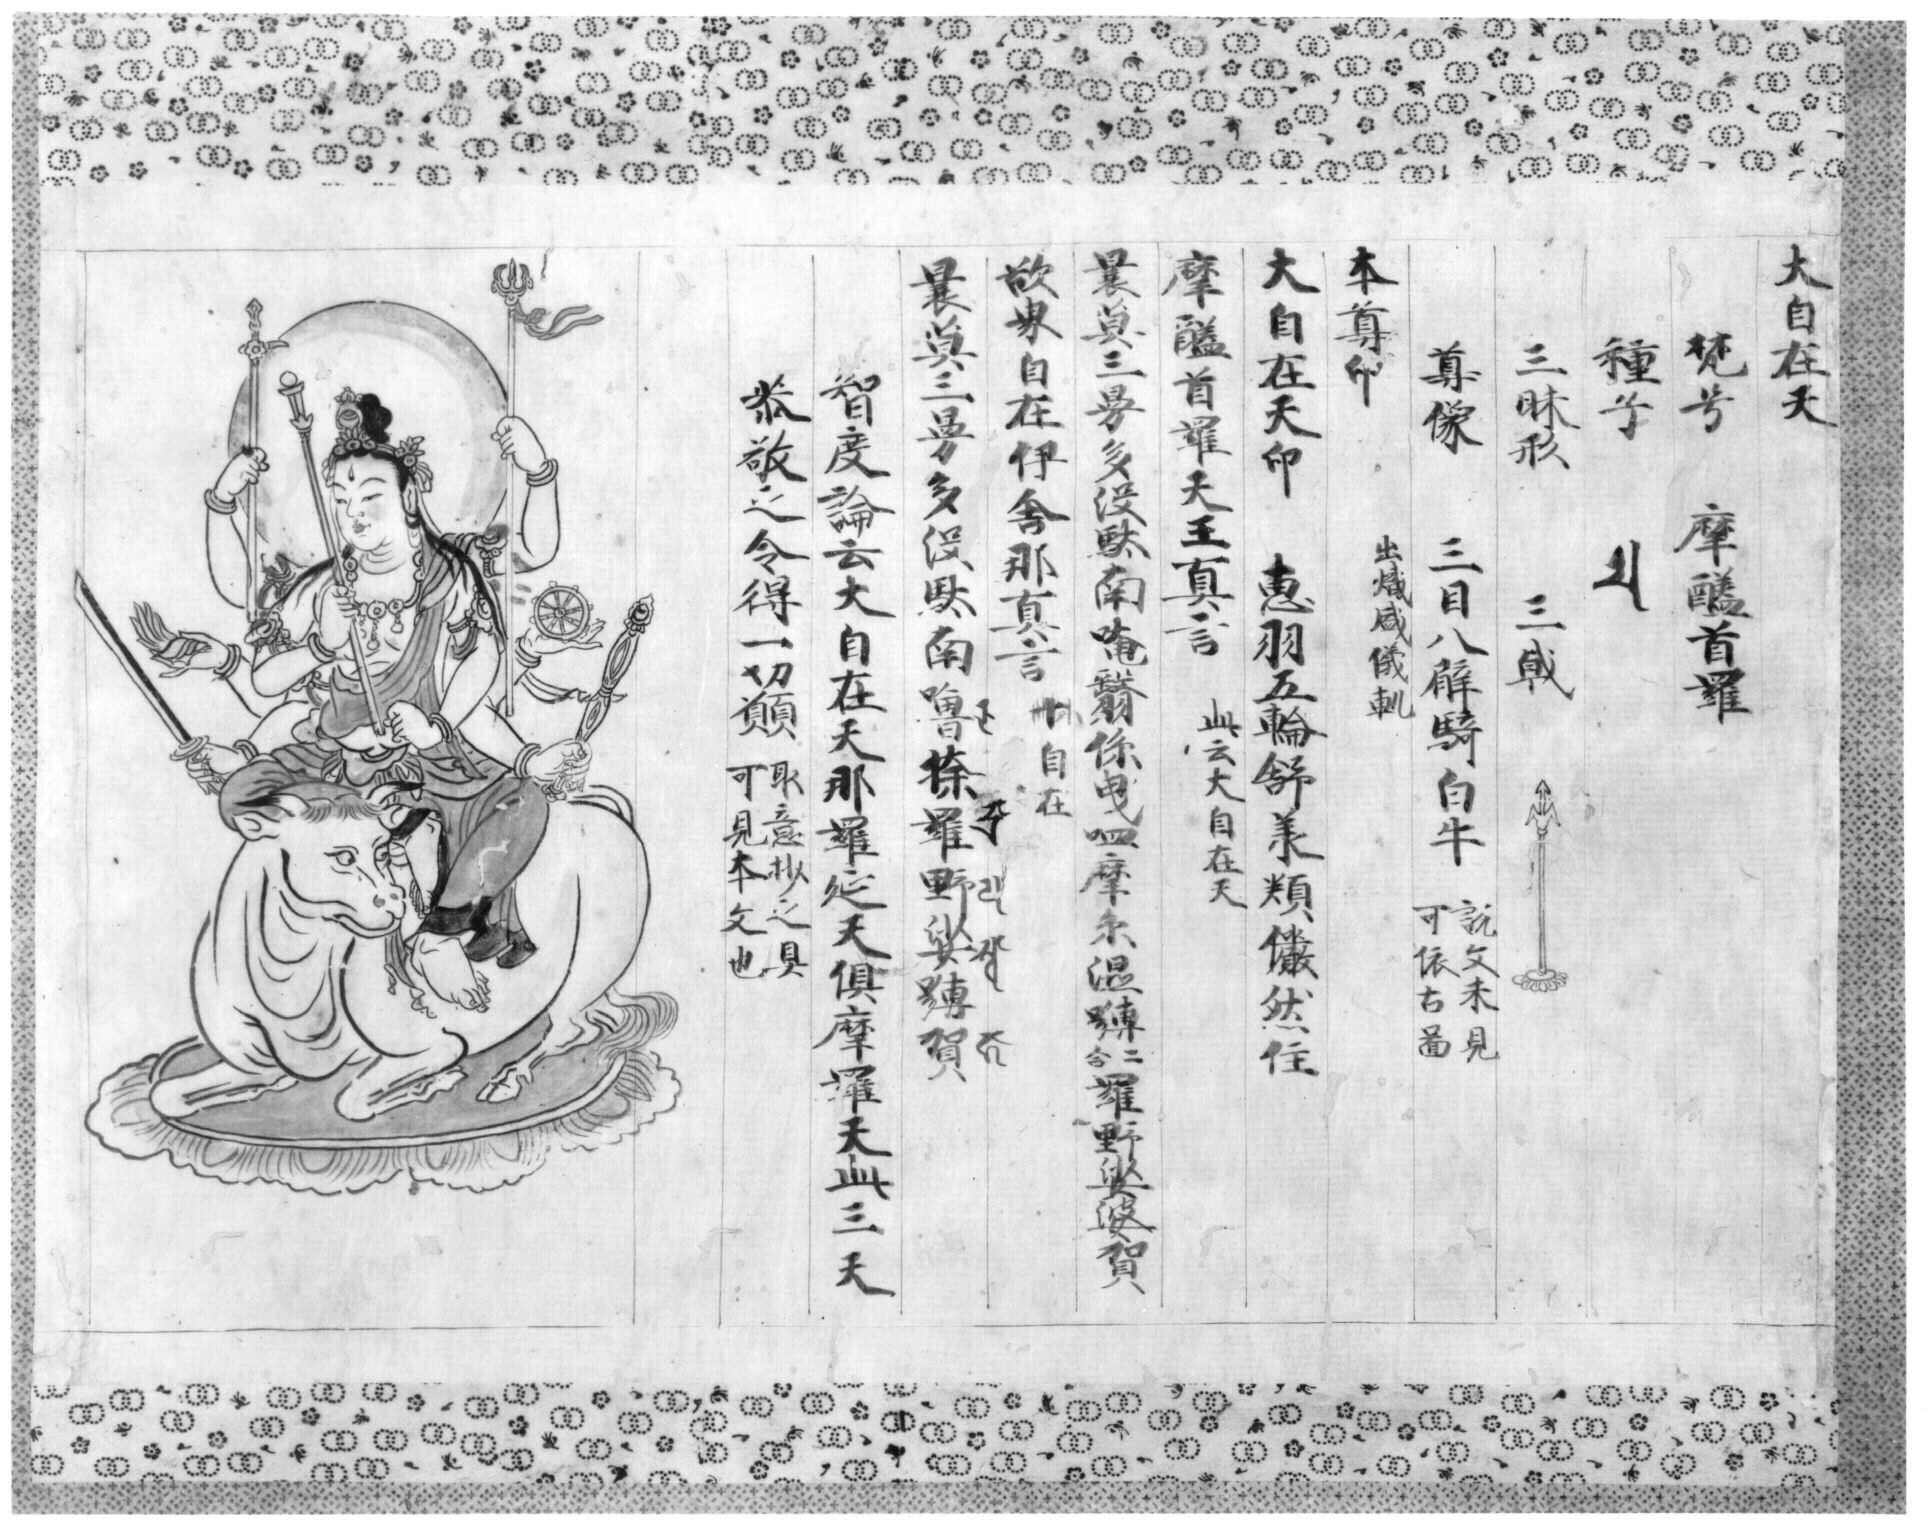 大自在天
梵号 摩醯首羅
種子
三昧形 三戟
尊像 三目八臂騎白牛 說文未見
可依古圖
本尊印 出熾盛儀軌
大自在天印 惠羽五輪舒 类類儼然住
摩醯首羅天王真言 此云大自在天
曩莫三曼多没馱南唵翳係曳呬摩系湿嚩二合羅野娑婆賀
欲界自在伊舎那真言 自在
曩莫三曼多没馱南嚕捺羅野娑嚩賀
智度論云大自在天那羅延天俱摩羅天此三天
恭敬之令得一切願 取意抄之具
可見本文也